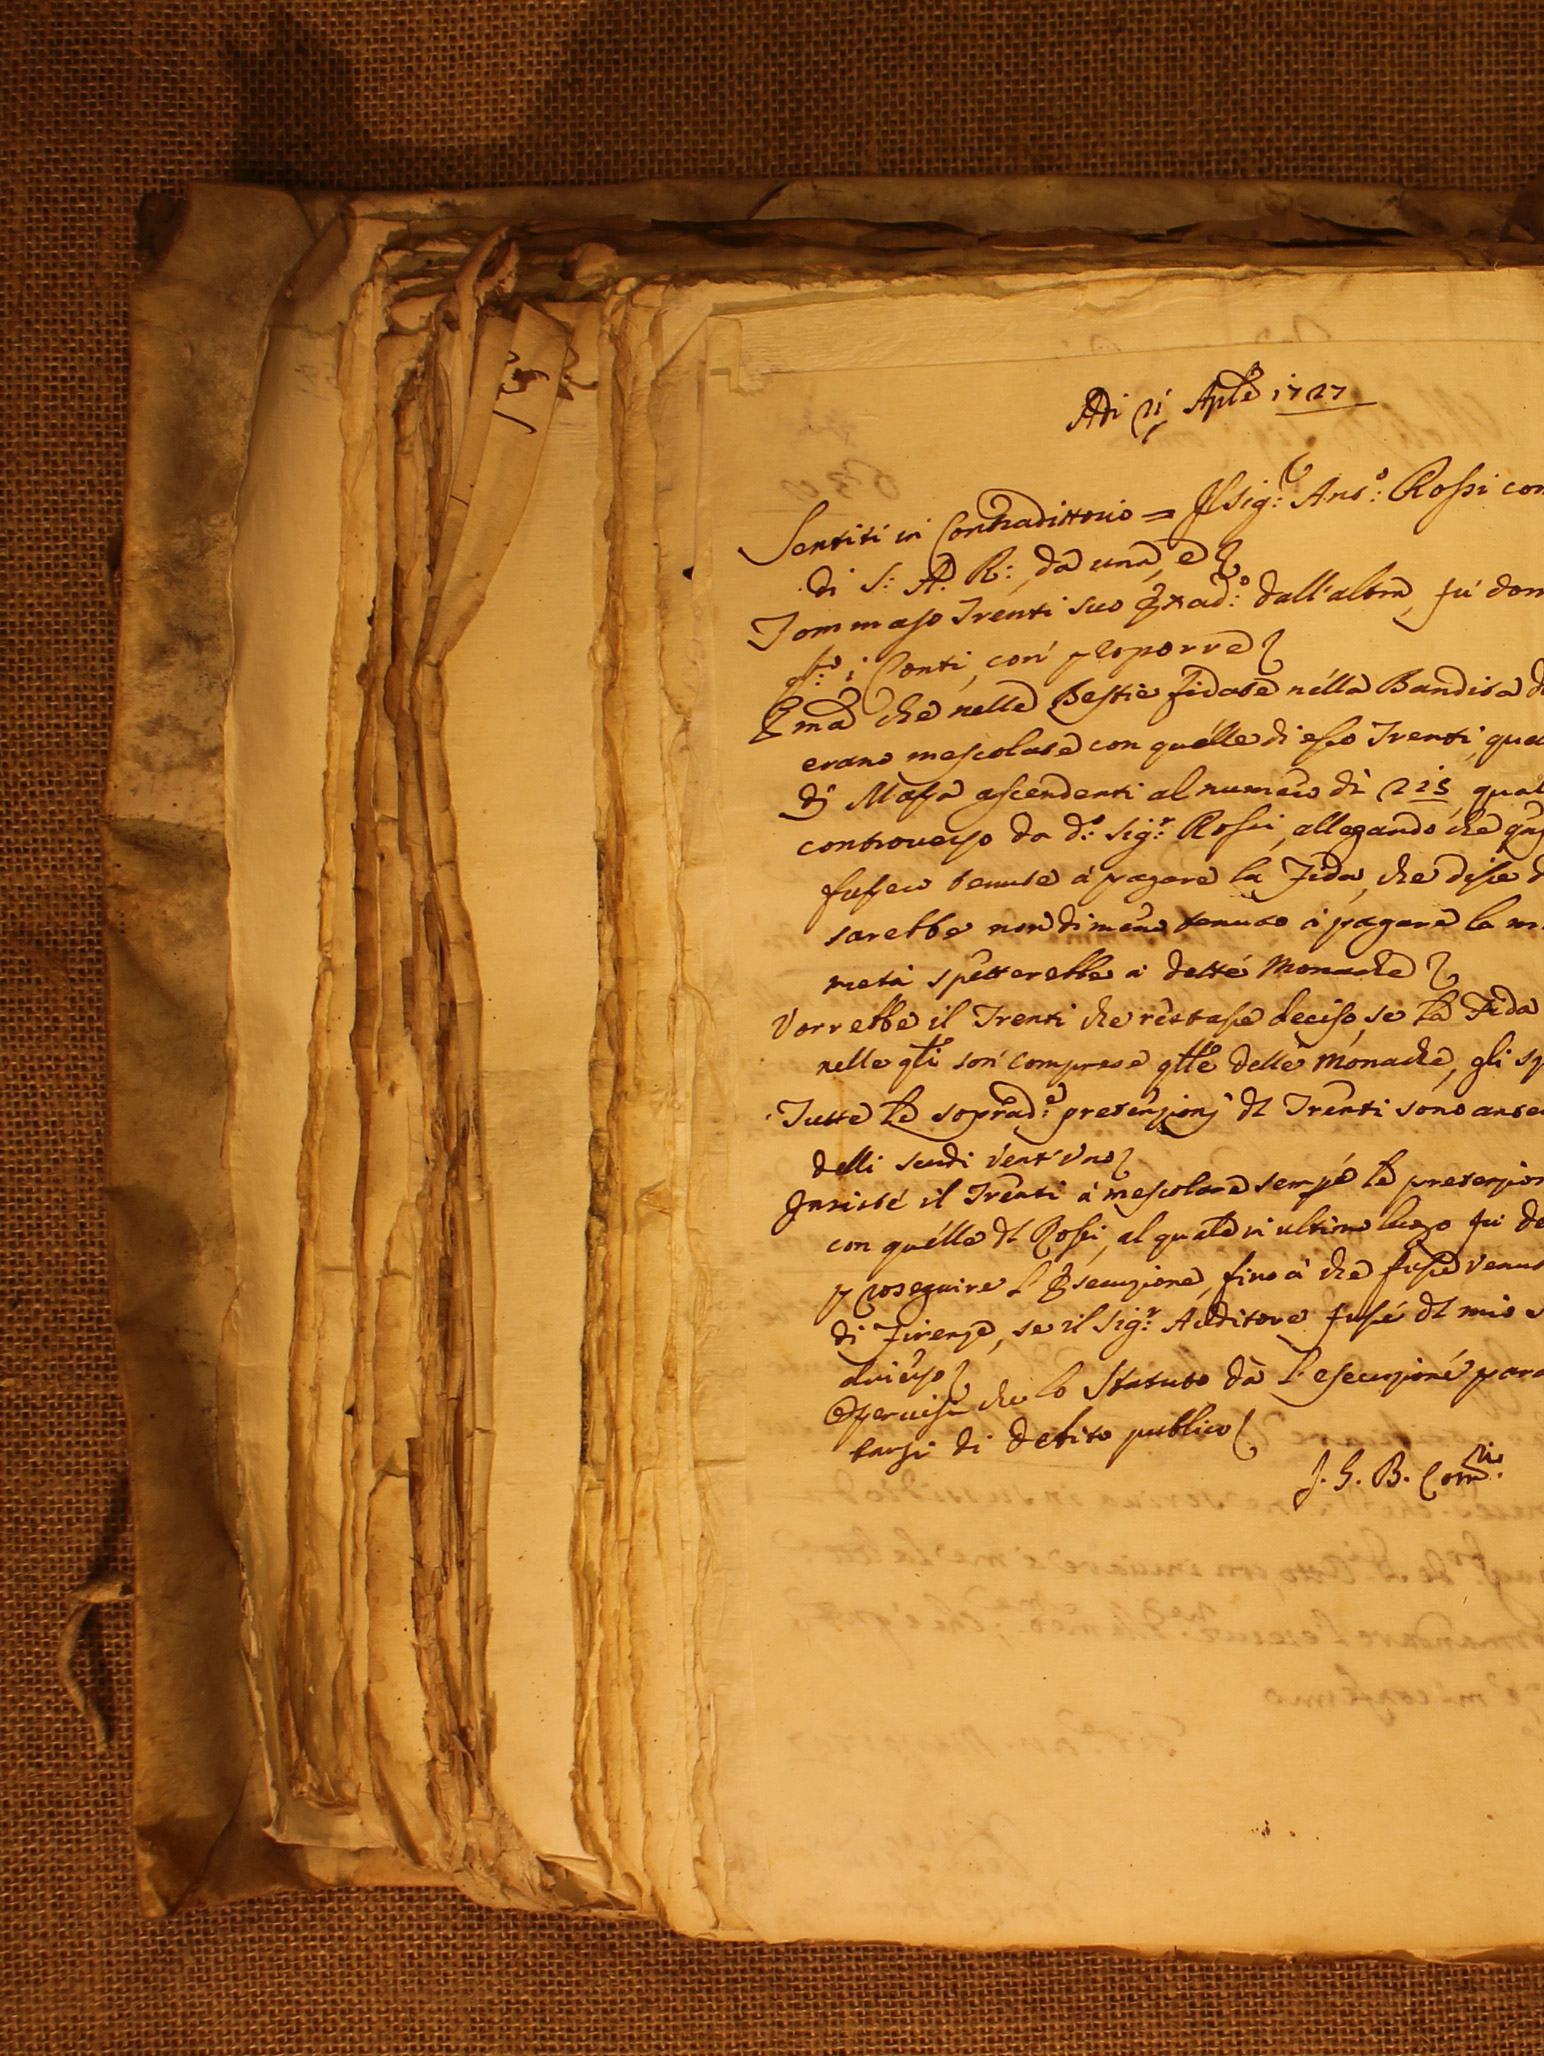 Adi 21 Aple 1727
Sentiti in Contradittorio = Il Sig:r Anto: Rossi con
di S: A: R: da una, e
Tommaso Trenti suo dall'altra, fù dom
i Conti, con proporre
Pma che nelle Bestie fidate nella Bandita d
erano mescolate con quelle di esso Trenti, qua
di Massa ascendenti al numero di 215 qual
controverso da do: Sig:r Rossi, allegando che
fussero tenute à pagare la Fida, che disse d
sarebbe nondimeno tenuto à pagare la m
metà spetterebbe à dette Monache
Vorrebbe il Trenti che restasse deciso, se la Fida
nelle qli son comprese qlle delle Monache, gli sp
Tutte le soprad:e pretenzioni dl Trenti sono ante
delli scudi vent'uno
Insiste il Trenti à mescolare sempre le pretenzion
con quelle dl Rossi, al quale in ultimo luogo fù de
proseguire l'Esecuzione, fino à che fusse venut
di Firenze, se il Sig:r Auditore fusse dl mio
Osservisi che lo Statuto dà l'esecuzione para
tarsi di debito publico
J. G. B. Com:rio